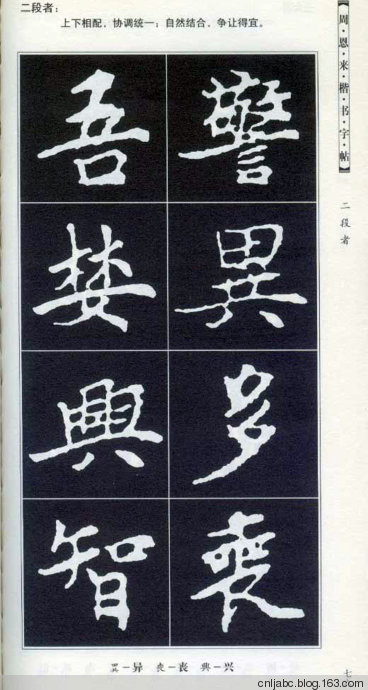 二段者：
上下相配，协调统一；自然结合，争让得宜。
【周·恩·来·楷·书·字·帖】
二段者
警
異
多
喪
吾
婪
興
智
異－异 喪－丧 興－兴
七
cnljabc.blog.163.com